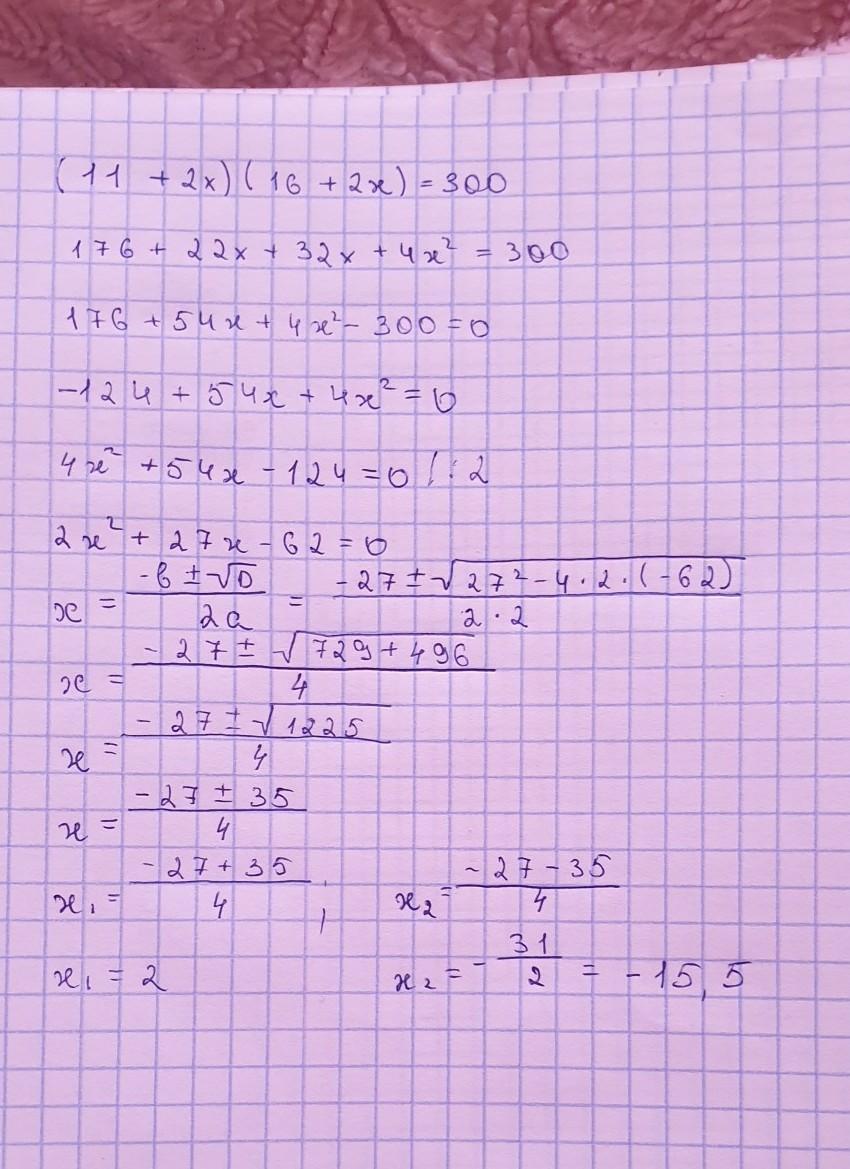 (11 + 2x)(16 + 2x) = 300
176 + 22x + 32x + 4x² = 300
176 + 54x + 4x² - 300 = 0
-124 + 54x + 4x² = 0
4x² + 54x - 124 = 0 /:2
2x² + 27x - 62 = 0
x = (-b ± √D)/(2a) = (-27 ± √(27² - 4·2·(-62)))/(2·2)
x = (-27 ± √(729 + 496))/4
x = (-27 ± √1225)/4
x = (-27 ± 35)/4
x₁ = (-27 + 35)/4 ; x₂ = (-27 - 35)/4
x₁ = 2 x₂ = -31/2 = -15,5